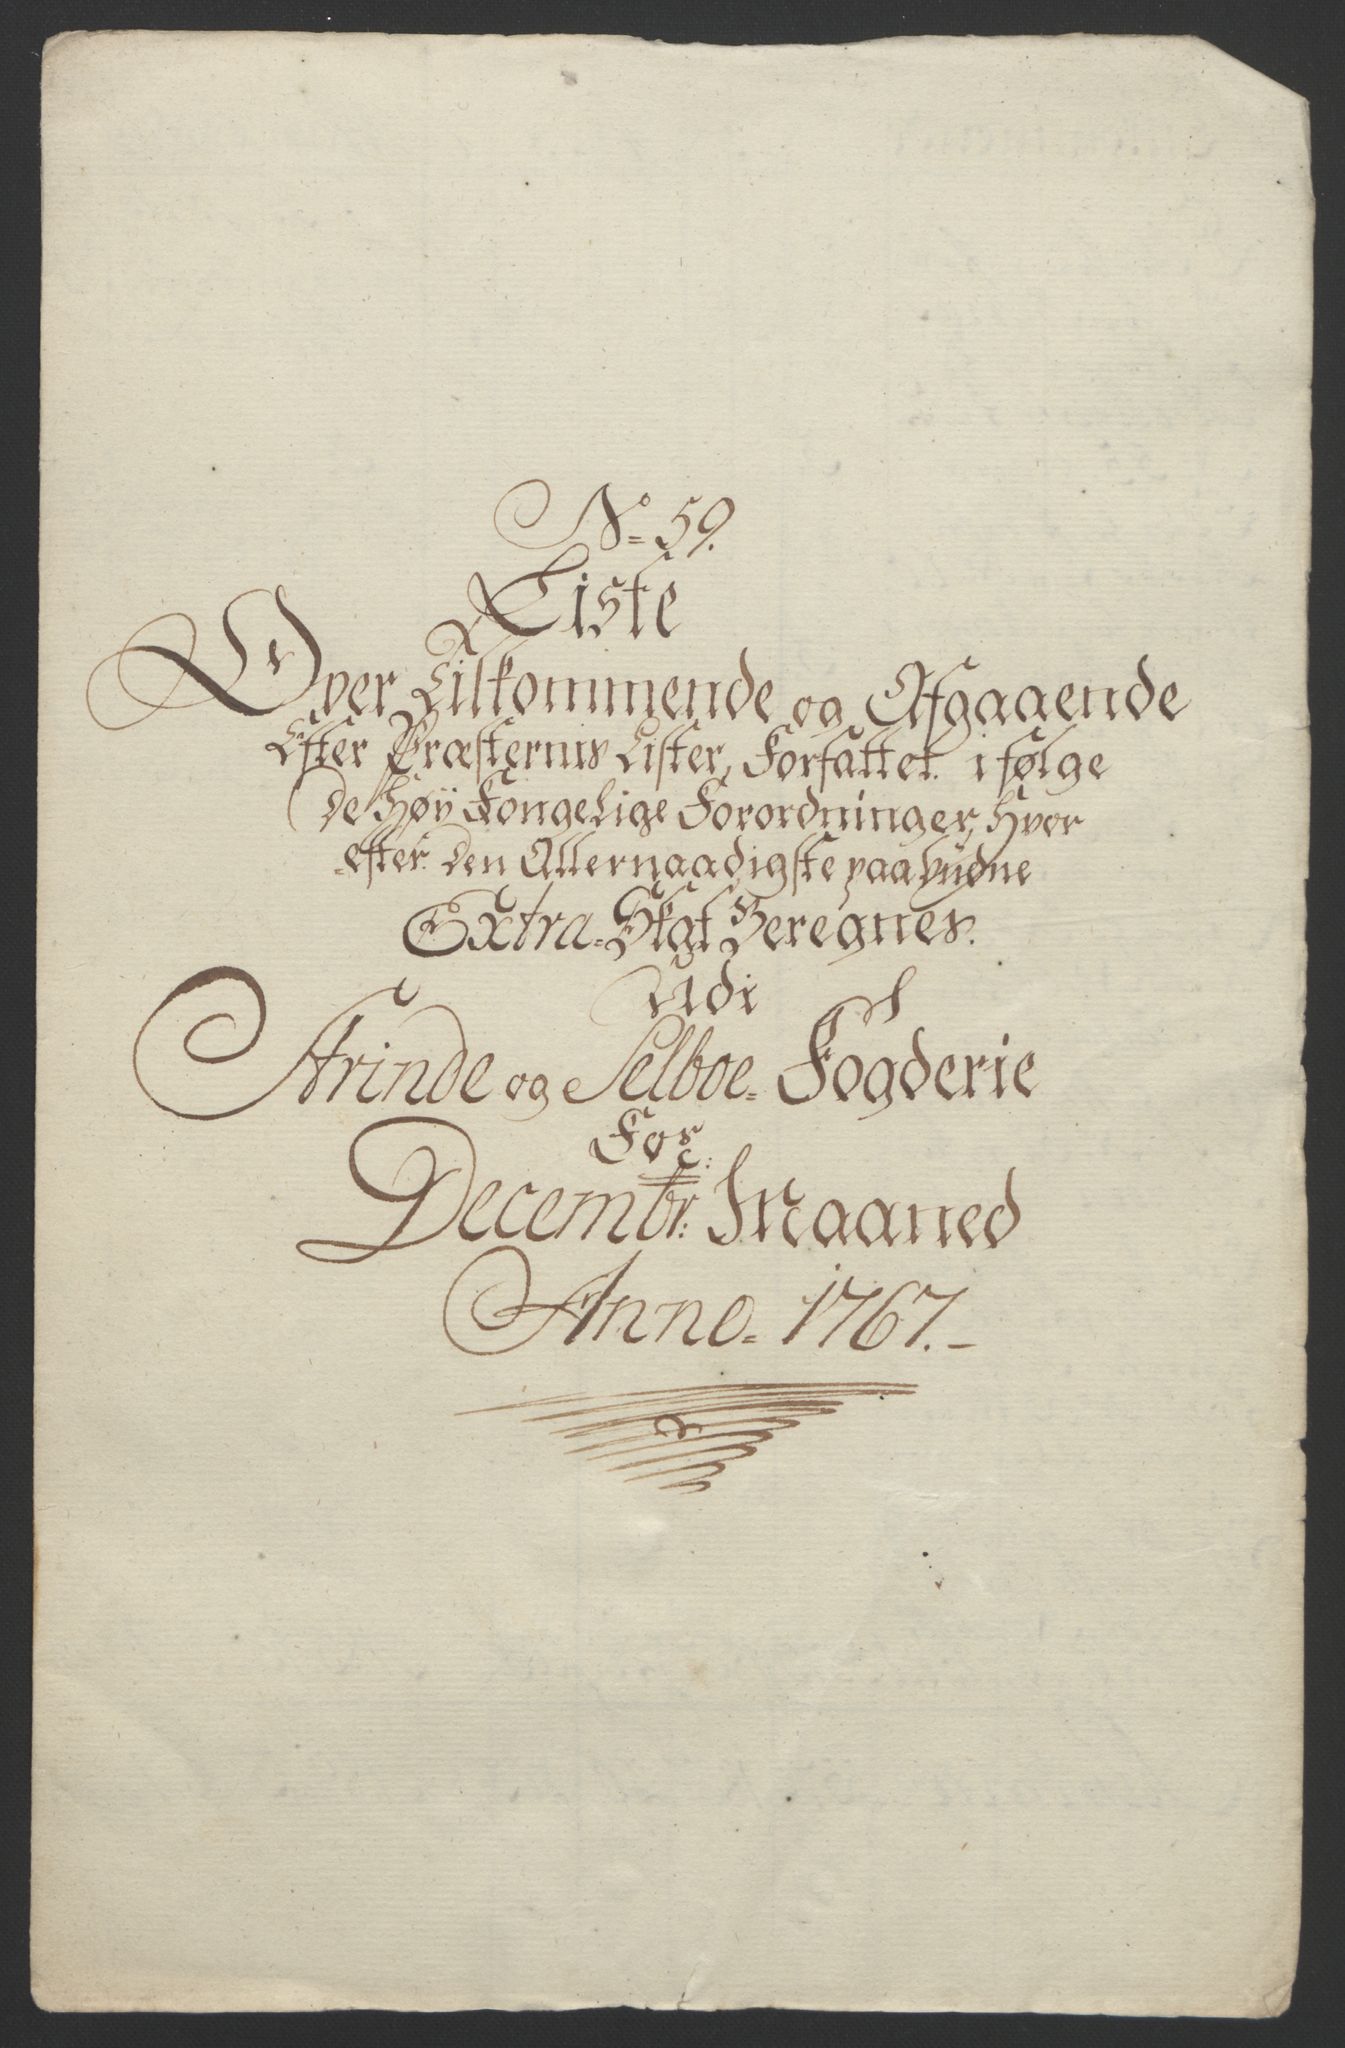 No 59.
Liste
Over Tilkommende og Afgaaende
Efter Præsternis Lister, Forfattet i følge
de Høy Kongelige Forordninger, Hvor
efter den Allernaadigste paabudne
Extra-Skat Beregnes.
Udi
Strinde og Selboe Fogderie
For
Decembr: Maaned
Anno 1767.